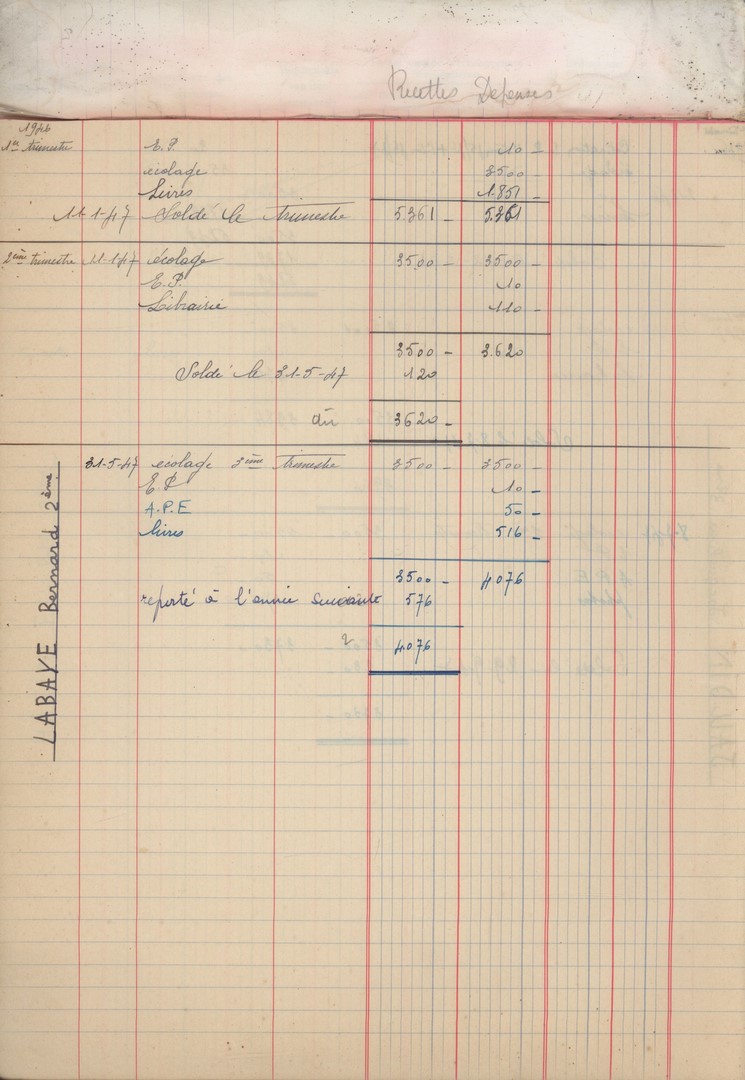 Recettes Dépenses
1946
1er trimestre E.P. 10 -
écolage 3500 -
Livres 1.851 -
11-1-47 Soldé le trimestre 5.361 - 5.361
2ème trimestre 11-1-47 écolage 3500 - 3500 -
E.P. 10
Librairie 110 -
3500 - 3.620
Soldé le 31-5-47 120
du 3620 -
31-5-47 écolage 3ème trimestre 3500 - 3500 -
E.P 10 -
A.P.E 50 -
livres 516 -
3500 - 4076
reporté à l'année suivante 576
4076
LABAYE Bernard 2ème